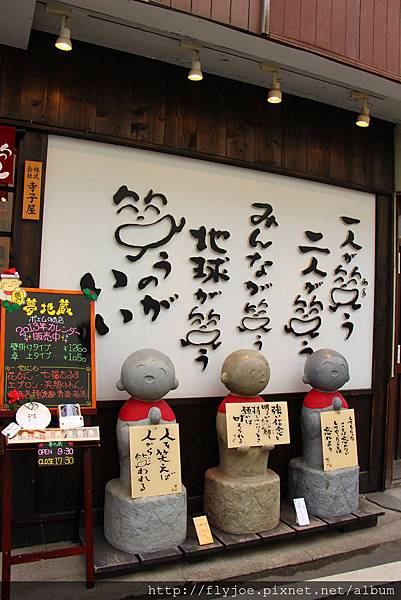 一人が笑う
二人が笑う
みんなが笑う
地球が笑う
笑うのが
いい
株式会社
寺子屋
夢地蔵
ポエムのお店
2013年カレンダー
販売中
壁掛けタイプ ¥1260
卓上タイプ ¥1050
七福だるま
エプロン・
OPEN 9:30
CLOSE 17:30
人を笑えば
人から笑われる
強い信念と
http://flyjoe.pixnet.net/album